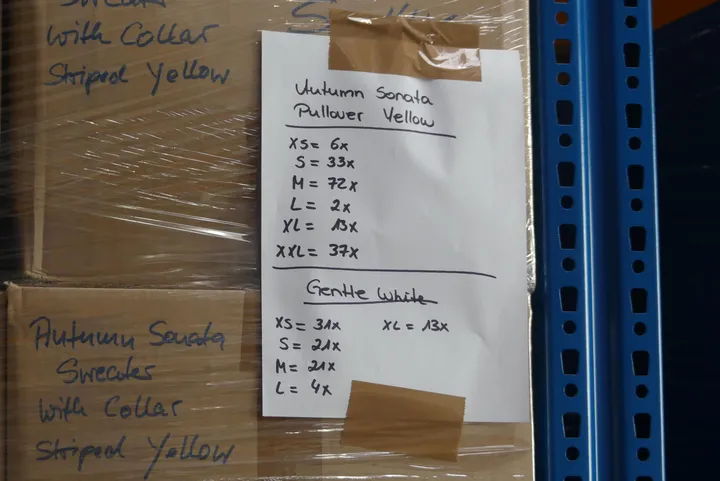 Sweater
with Collar
Striped Yellow
Autumn Sonata
Pullover Yellow
XS = 6x
S = 33x
M = 72x
L = 2x
XL = 13x
XXL = 37x
Gentle White
XS = 31x XL = 13x
S = 21x
M = 21x
L = 4x
Autumn Sonata
Sweater
with Collar
Striped Yellow